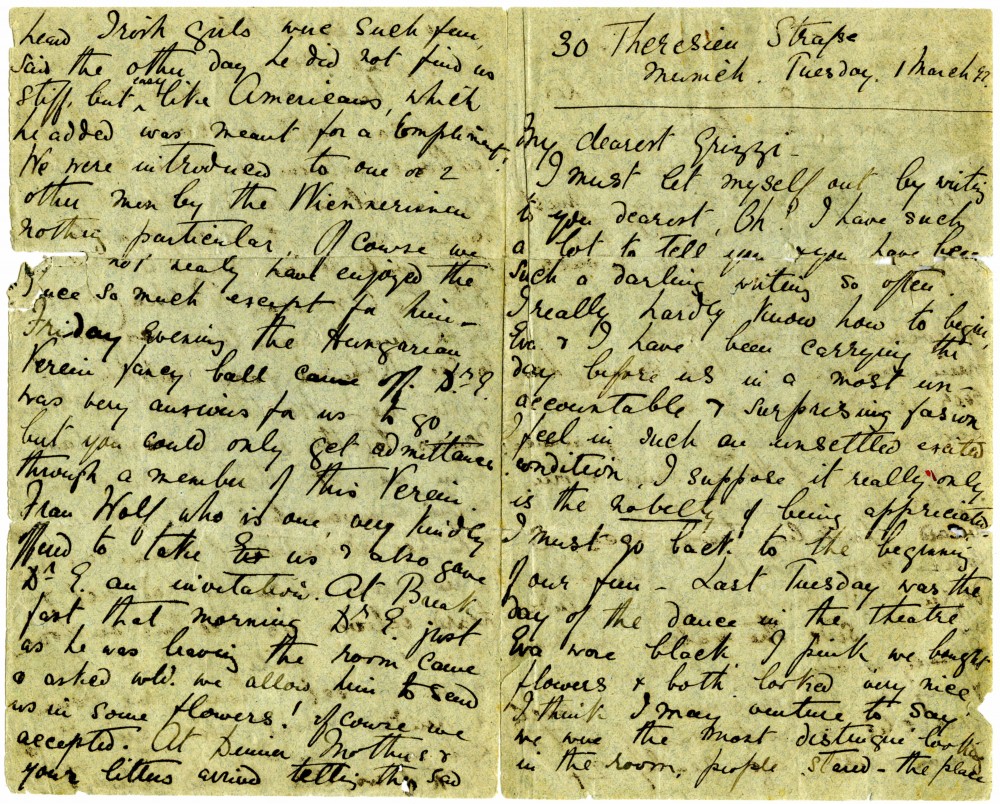 30 Theresien Straße
Munich. Tuesday. 1 March 92.
My dearest Grizzi -
I must let myself out by writing
to you dearest, Oh! I have such
a lot to tell you & you have been
such a darling writing so often.
I really hardly know how to begin,
Eva & I have been carrying the
day before us in a most un-
accountable & surprising fasion
I feel in such an unsettled exated
condition, I suppose it really only
is the novelty of being appreciated.
I must go back to the beginning
of our fun - Last Tuesday was the
day of the dance in the theatre
Eva wore black I pink we bought
flowers & both looked very nice
I think I may venture to say
we were the most distinguè looking
in the room, people stared - the place
head Irish girls were such fun,
said the other day he did not find us
stiff, but like Americans, which
he added was meant for a compliment,
We were introduced to one or 2
other men by the Wiennerinnen
nothing particular, Of course we
not nearly have enjoyed the
so much except for him -
Friday Evening the Hungarian
Verein fancy ball came off. Dr. E.
was very anxious for us to go,
but you could only get admittance
through a member of this Verein.
Frau Wolf who is one, very kindly
offered to take us & also gave
Dr E. an invitation. At Break
fast that morning Dr E. just
as he was leaving the room came
& asked wld. we allow him to send
us in some flowers! of course we
accepted. At Dinner Mothers &
your letters arrived telling the sad